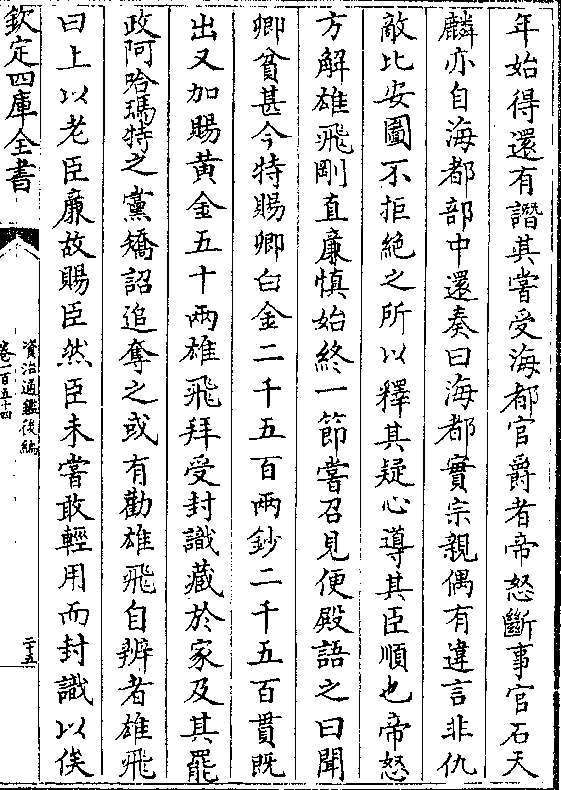 年始得還有譖其嘗受海都官爵者帝怒斷事官石天
麟亦自海都部中還奏曰海都實宗親偶有違言非仇
敵比安圖不拒絕之所以釋其疑心導其臣順也帝怒
方解雄飛剛直廉慎始終一節嘗召見便殿語之曰聞
卿貧甚今特賜卿白金二千五百兩鈔二千五百貫既
出又加賜黃金五十兩雄飛拜受封識藏於家及其罷
政阿哈瑪特之黨矯詔追奪之或有勸雄飛自辨者雄飛
曰上以老臣廉故賜臣然臣未嘗敢輕用而封識以俟
欽定四庫全書
資治通鑑後編
卷一百五十四
二十五